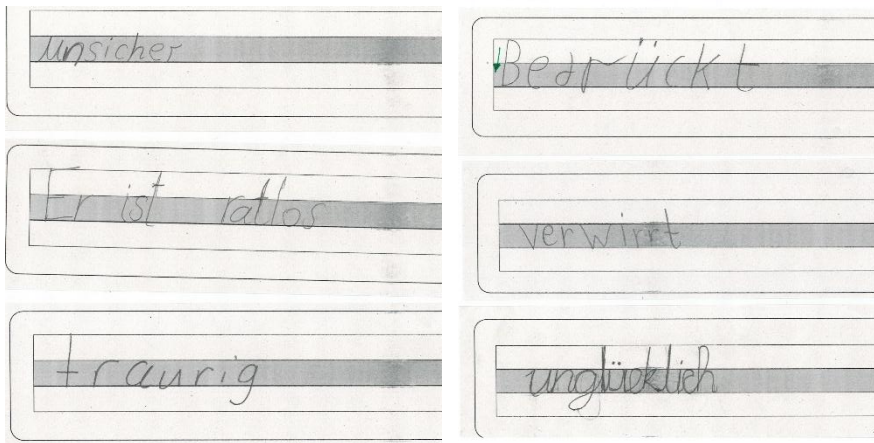 unsicher
Er ist ratlos
traurig
Bedrückt
verwirrt
unglücklich